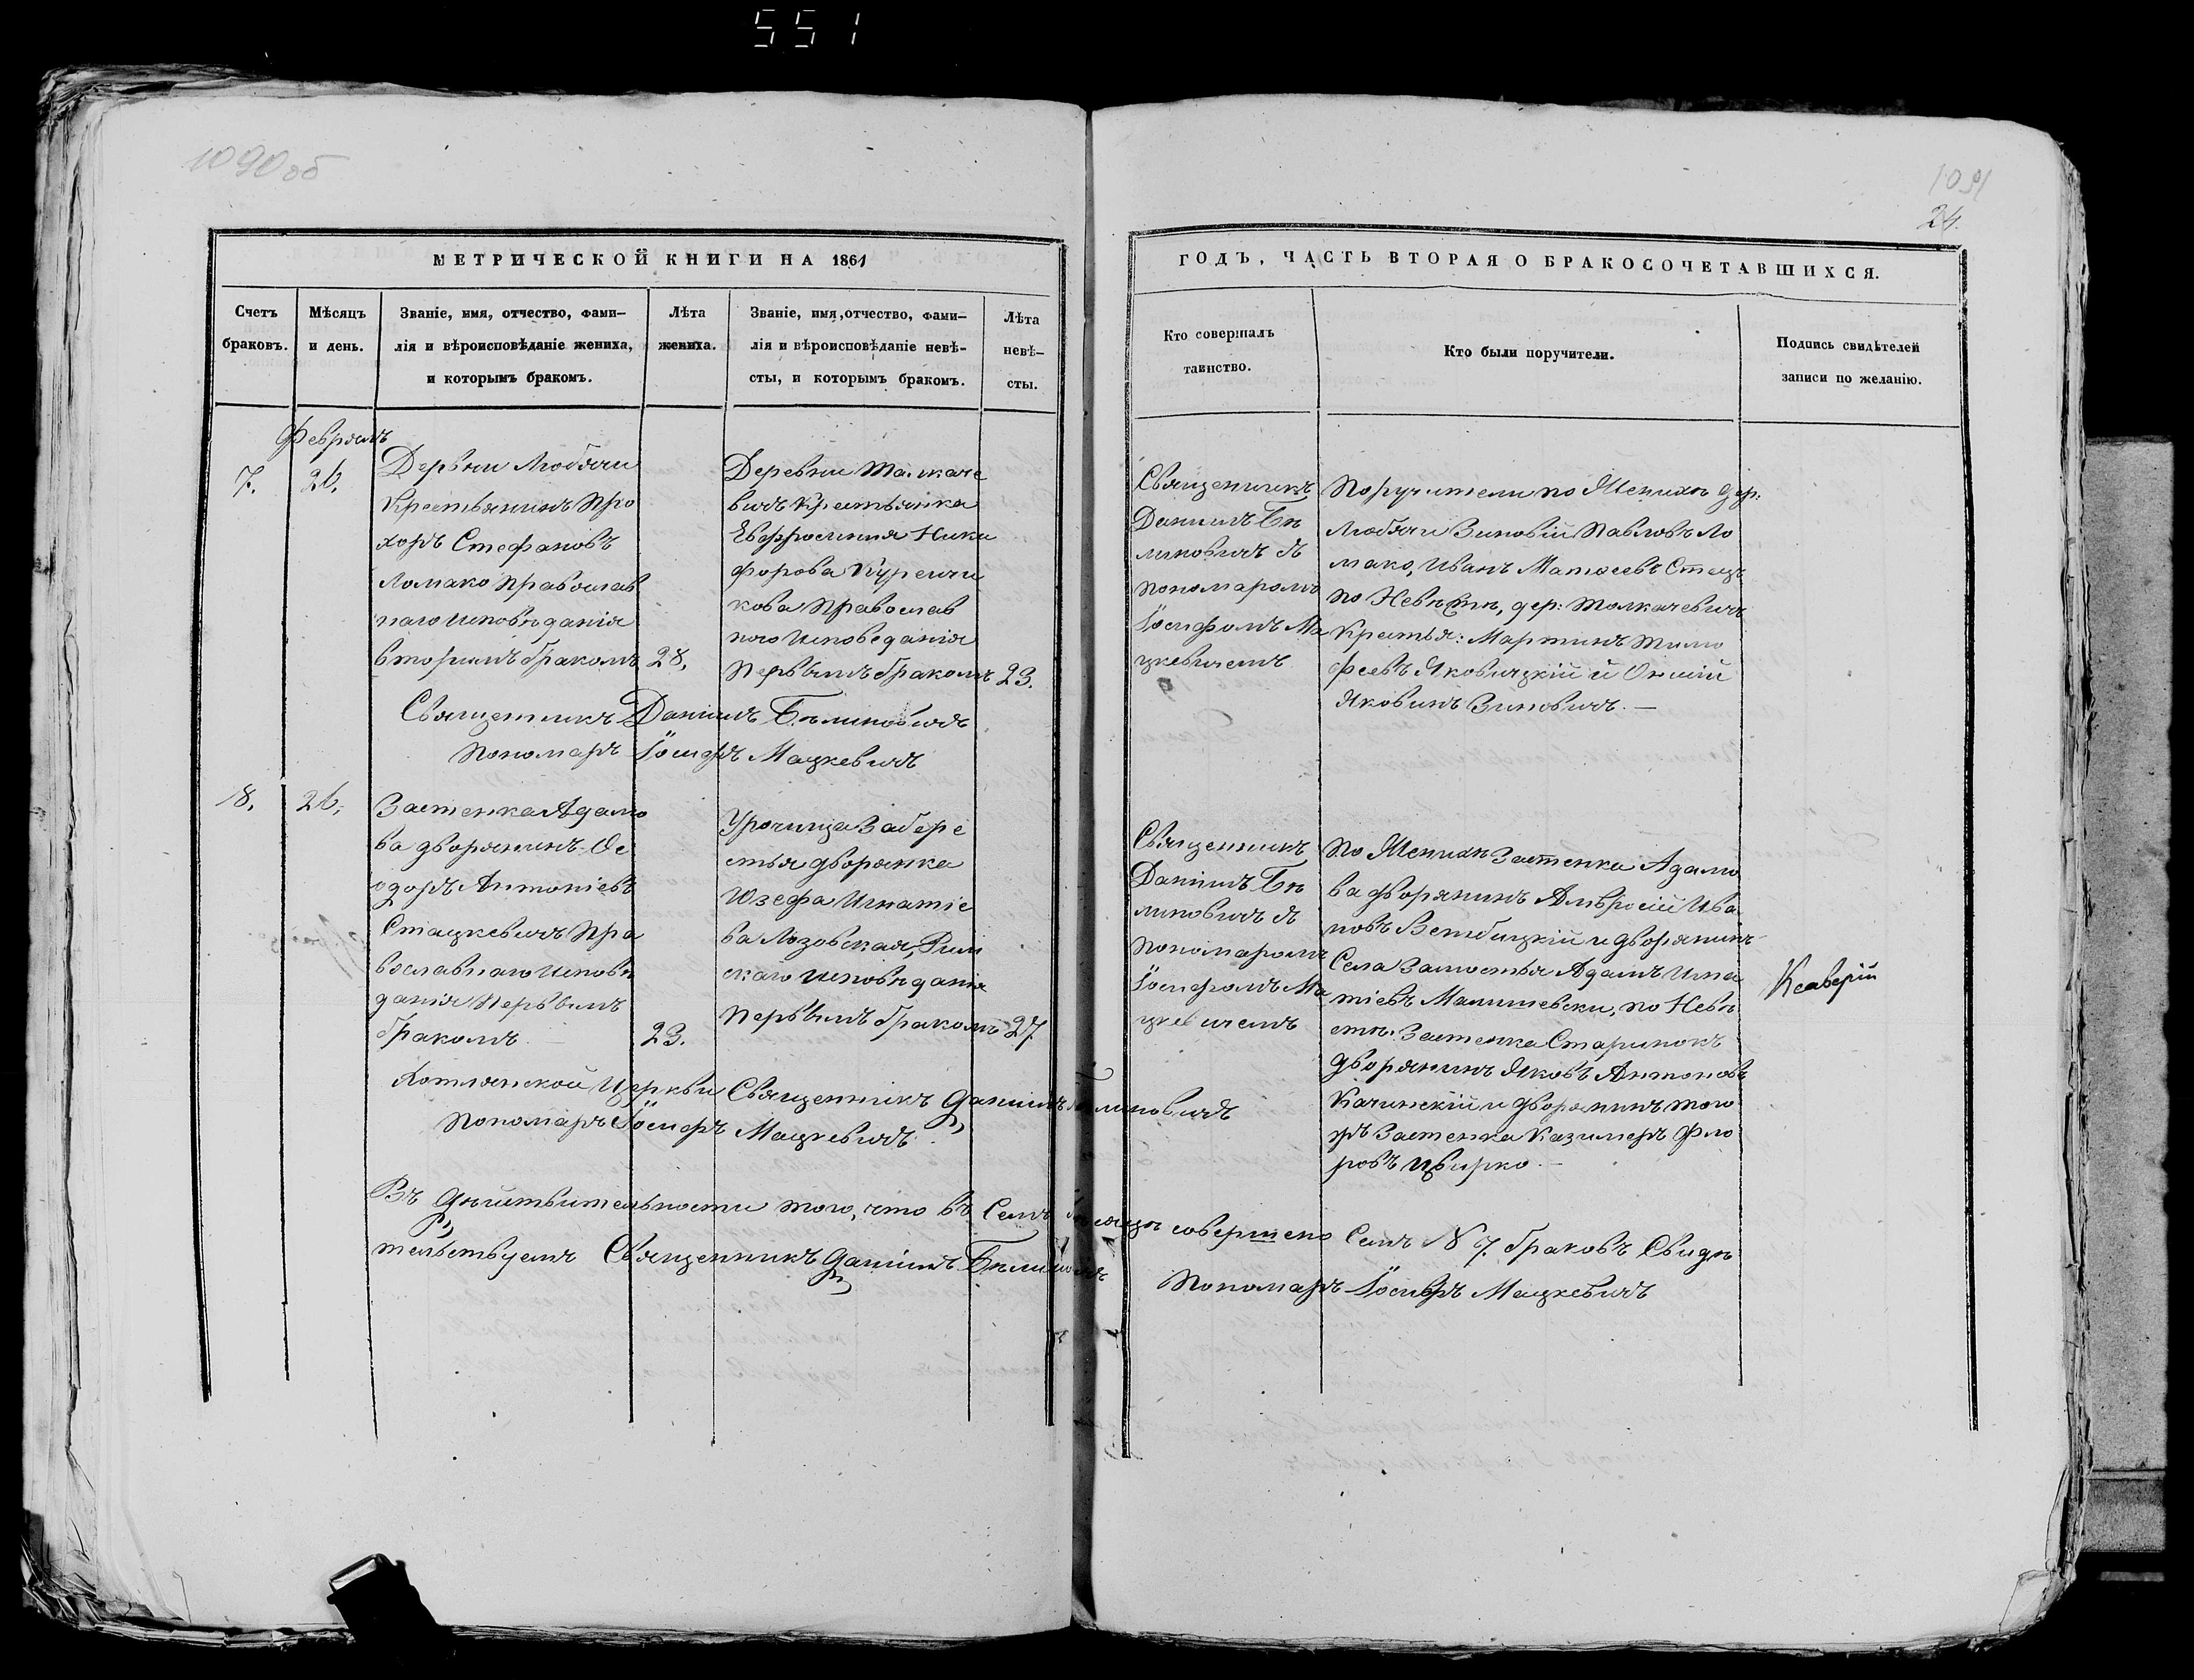 551
1090 об
1091
24.
МЕТРИЧЕСКОЙ КНИГИ НА 1861
ГОДЪ, ЧАСТЬ ВТОРАЯ О БРАКОСОЧЕТАВШИХСЯ.
Счетъ браковъ.
Мѣсяцъ и день.
Званіе, имя, отчество, фами-
лія и вѣроисповѣданіе жениха,
и которымъ бракомъ.
Лѣта жениха.
Званіе, имя, отчество, фами-
лія и вѣроисповѣданіе невѣ-
сты, и которымъ бракомъ.
Лѣта невѣ-
сты.
Кто совершалъ
таинство.
Кто были поручители.
Подпись свидѣтелей
записи по желанію.
Февраль
7.
26.
Деревни Любячи
Крестьянинъ Про
хоръ Стефановъ
Ломако Православ
наго исповѣданія
вторымъ бракомъ
28,
Деревни Толкаче
вичъ Крестьянка
Евфросинія Ники
форова Куренчи
кова Православ
ного исповеданія
Первымъ бракомъ
23.
Священникъ
Даніилъ Бѣ
линовичъ съ
пономаромъ
Іосифомъ Ма
цкевичемъ
Поручители по Женихѣ дер:
Любячи Зиновій Павловъ Ло
мако, Иванъ Матѳеевъ Стецъ
по Невѣстѣ, дер: Толкачевичъ
Крестья: Мартинъ Тимо
феевъ Яковицкій и Онисій
Яковинъ Зиновичъ.—
Священникъ Даніилъ Бѣлиновичъ
Пономаръ Іосифъ Мацкевичъ
8,
26,
Застенка Адамо
ва дворянинъ Ѳе
одоръ Антоніевъ
Стацкевичъ Пра
вославнаго исповѣ
данія Первымъ
бракомъ
23.
Урочища Забере
стья дворянка
Юзефа Игнатіе
ва Лозовская, Рим
скаго исповѣданія
Первымъ бракомъ
27.
Священникъ
Даніилъ Бѣ
линовичъ съ
пономаромъ
Іосифомъ Ма
цкевичемъ
По Женихѣ Застенка Адамо
ва дворянинъ Амвросій Ива
новъ Вембицкій и дворянинъ
Села Замостья Адамъ Игна
тіевъ Малишевски, по Невѣ
стѣ: Застенка Старинокъ
дворянинъ Яковъ Антоновъ
Качинскій и дворянинъ того
жъ Застенка Казимеръ Фло
ровъ Цвирко.—
Ксаверій
Хотлянской Церкви Священникъ Даніилъ Бѣлиновичъ
Пономаръ Іосифъ Мацкевичъ.
Въ дѣйствительности того, что въ Семъ мѣсяцѣ совершено Семь № 7. браковъ Свидѣ
тельствуемъ Священникъ Даніилъ Бѣлиновичъ
Пономаръ Іосифъ Мацкевичъ